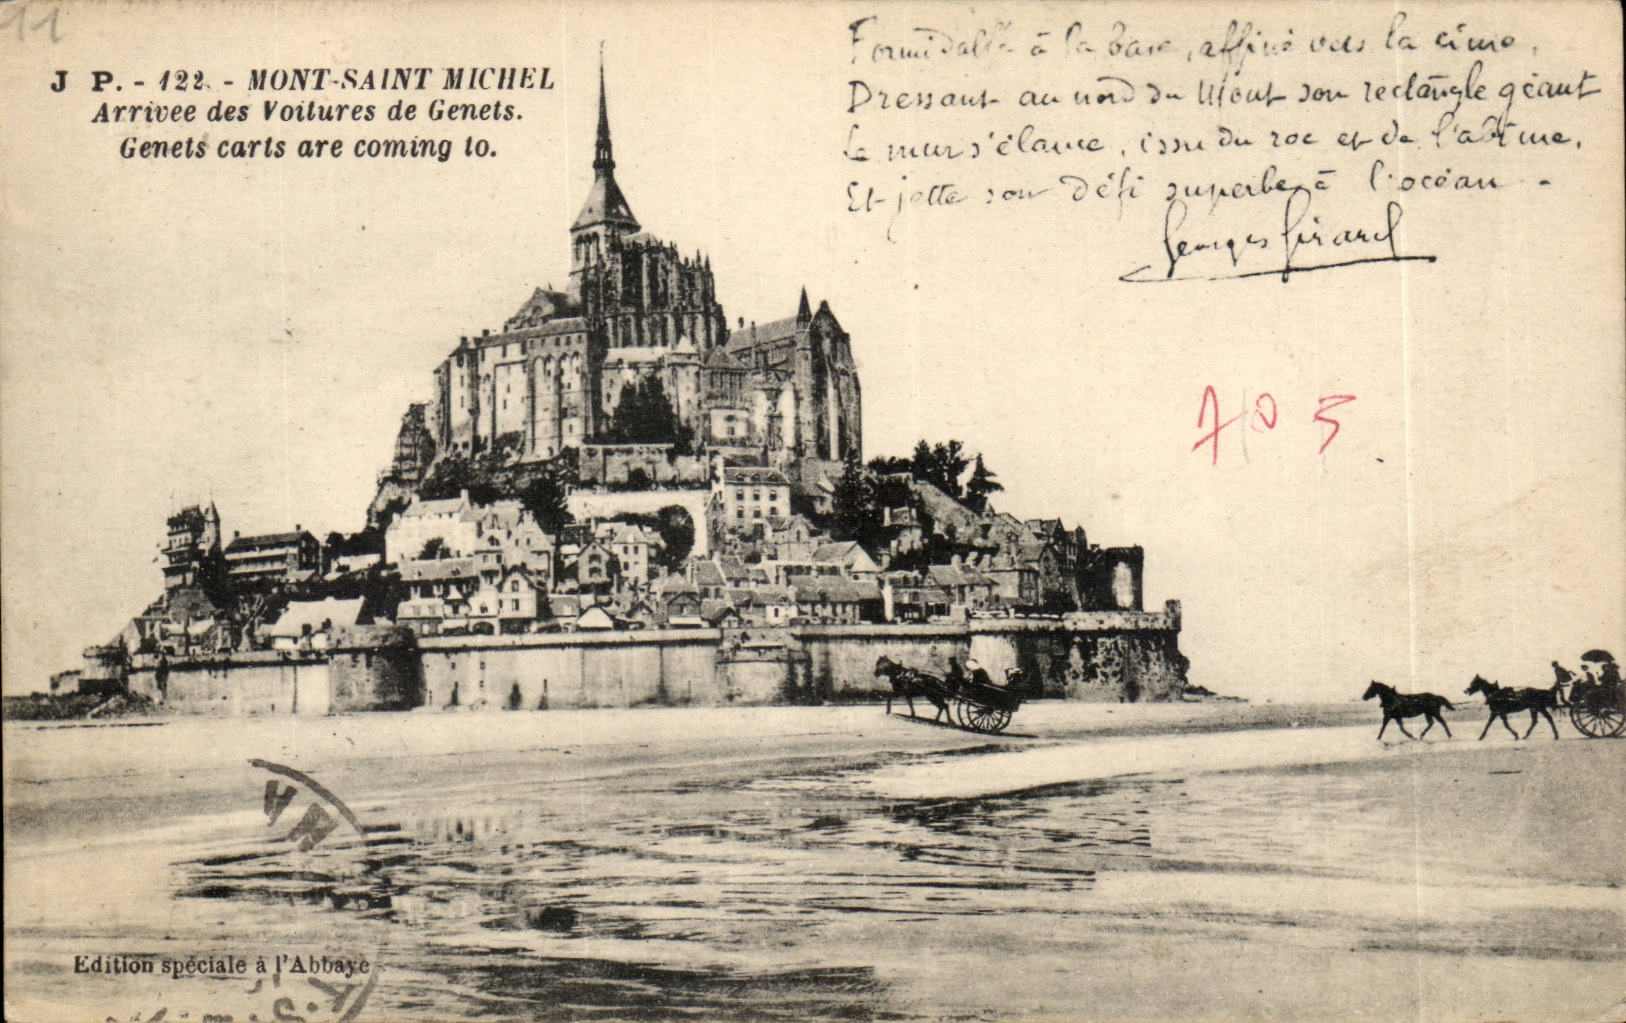 11
J P. - 122. - MONT-SAINT MICHEL
Arrivee des Voitures de Genets.
Genets carts are coming to.
Formidable à la base, affiné vers la cime,
Dressant au nord du Mont son rectangle géant
Le mur s'élance, issu du roc et de l'abîme,
Et jette son défi superbe à l'océan -
Georges Girard
705
Edition spéciale à l'Abbaye